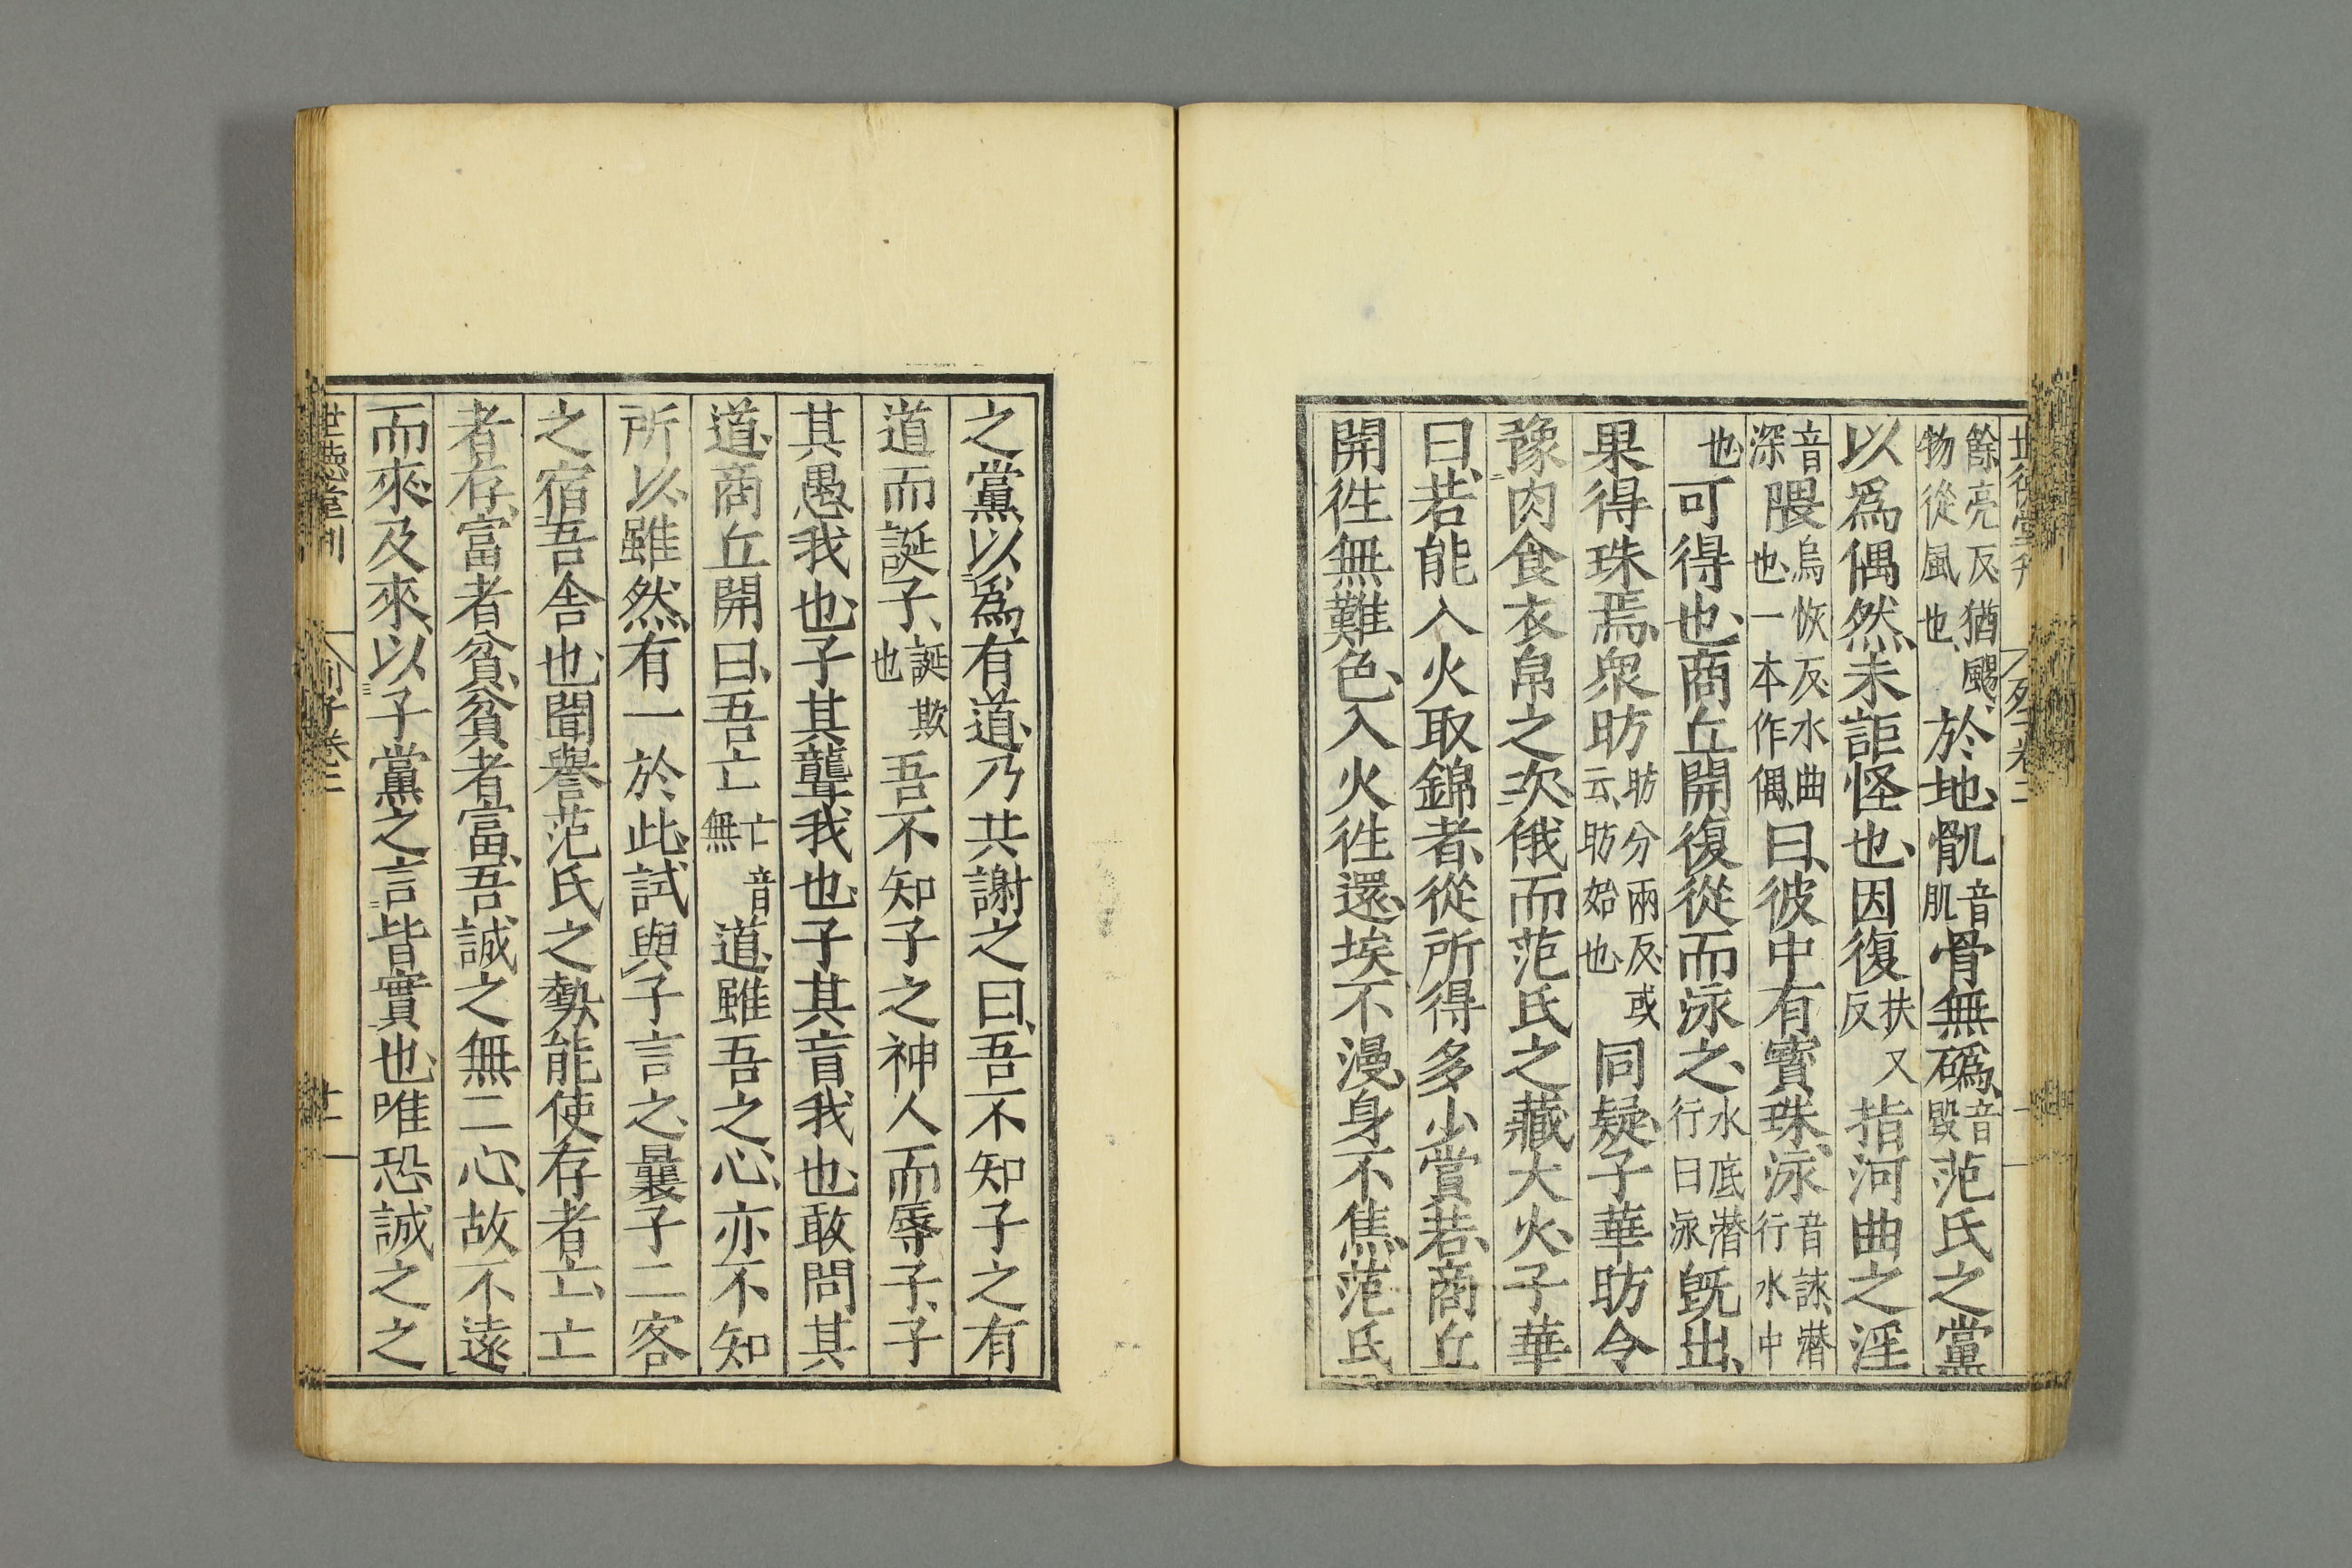 餘亮反猶颺物從風也於地骪音肌骨無䃣音毀范氏之黨
以爲偶然未詎怪也因復扶又反指河曲之淫
音深隈烏恢反水曲也一本作偶曰彼中有寳珠泳音詠潜行水中
也可得也商丘開復從而泳之水底潜行曰泳旣出
果得珠焉衆昉昉分兩反或云昉始也同疑子華昉令
豫肉食衣帛之次俄而范氏之藏大火子華
曰若能入火取錦者從所得多少賞若商丘
開往無難色入火往還埃不漫身不焦范氏
之黨以爲有道乃共謝之曰吾不知子之有
道而誕子誕欺也吾不知子之神人而辱子子
其愚我也子其聾我也子其盲我也敢問其
道商丘開曰吾亡亡音無道雖吾之心亦不知
所以雖然有一於此試與子言之曩子二客
之宿吾舍也聞譽范氏之勢能使存者亡亡
者存富者貧貧者富吾誠之無二心故不遠
而來及來以子黨之言皆實也唯恐誠之之
世德堂刊 列子卷二